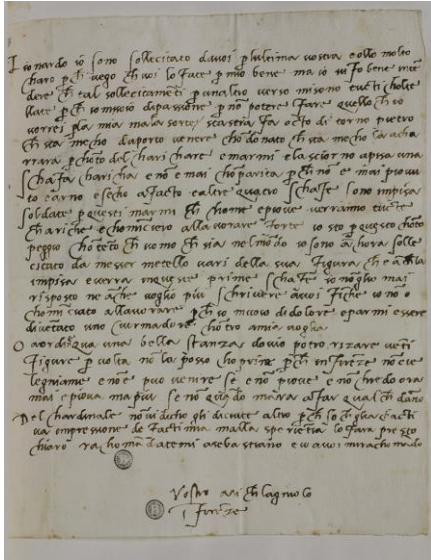 Lionardo io sono sollecitato da voi p lultima vostra e ollo molto
charo p ch vego ch voi lo fate p mio bene ma io vi fo bene inte
dere ch tal sollecitameti p unaltro verso mi sono tucti cholte
llate p ch io muoio di passione p no potere fare quello ch io
vorrei p la mia mala sorte stasera fa octo di torno pietro
ch sta mecho da porto venere cho donato ch sta mecho a cha
rrara p choto del charichare e marmi e lasciorno a pisa una
schafa charicha e no e mai choparita p ch no e mai piovu
to e arno e secho afacto e altre quatro schafe sono i pisa
soldate p questi marmi ch chome e piove verranno tucte
chariche e chomicero allavorare forte io sto p questo choto
peggio choteto ch uomo ch sia nel modo io sono achora solle
citato da messer metello vari della sua figura ch e a la
i pisa e verra i queste prime schafe io no gli o mai
risposto ne ache voglio piu schrivere a voi fi ch io no o
chomiciato allavorare p ch io muoio di dolore e parmi essere
diventato uno ciurmadore chotro a mia voglia
O a ordine qua una bella stanza dov io potro rizare veti
figure p volta no la posso choprire p ch in fireze no c e
legniame e no e puo venire se e no piove e no chredo ora
mai e piova mai piu se no quado m ara a far qualch dano
Del chardinale no vi dicho gli diciate altro p ch so ch
impressione de facti mia ma lla sperieza lo fara presto
chiaro rachomadatemi a sebastiano e a voi mi rachomado
Vostro michelagniolo
i fireze